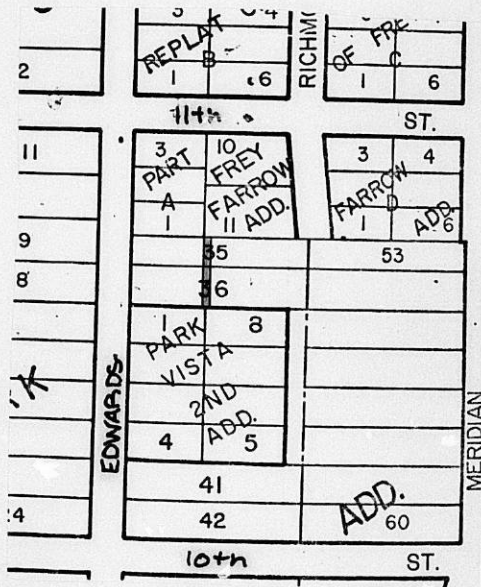 3 4
REPLAT
B
1 6
2
RICHMO
OF FRE
C
1 6
11th ST.
11
3 10
PART FREY
FARROW
ADD.
A
1 11
3 4
FARROW
D
1 ADD. 6
9
35
53
8
36
1 8
PARK
VISTA
2ND
ADD.
4 5
EDWARDS
MERIDIAN
K
41
42
24
ADD.
60
10th ST.